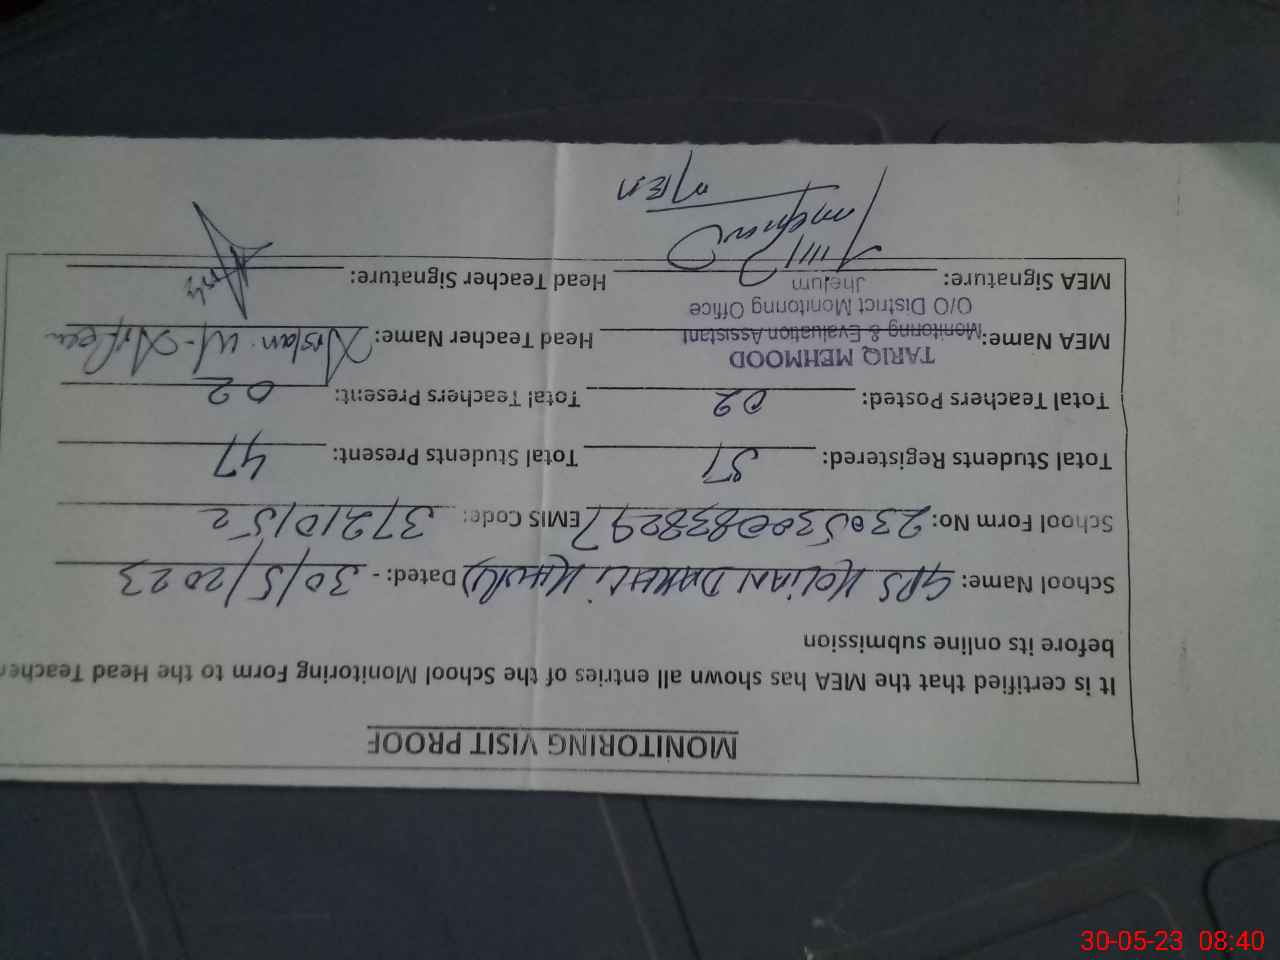 MONITORING VISIT PROOF
It is certified that the MEA has shown all entries of the School Monitoring Form to the Head Teacher
before its online submission
School Name: GPS KOLIAN DAKHLI Dated: - 30/5/2023
School Form No: EMIS Code: 37210152
Total Students Registered: 51 Total Students Present: 47
Total Teachers Posted: 02 Total Teachers Present: 02
TARIQ MEHMOOD
MEA Name: Monitoring & Evaluation Assistant Head Teacher Name: Arslan
O/O District Monitoring Office
MEA Signature: Jhelum Head Teacher Signature:
30-05-23 08:40